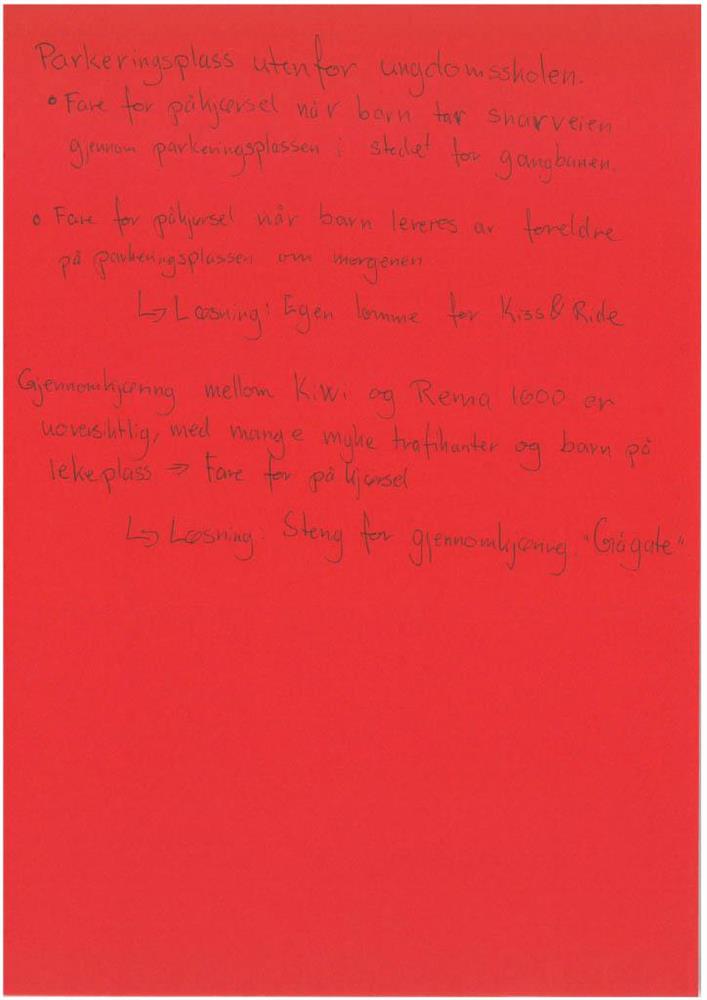 Parkeringsplass utenfor ungdomsskolen.
• Fare for påkjørsel når barn tar snarveien
gjennom parkeringsplassen i stedet for gangbanen.
• Fare for påkjørsel når barn leveres av foreldre
på parkeringsplassen om morgenen
↳ Løsning: Egen lomme for Kiss & Ride
Gjennomkjøring mellom Kiwi og Rema 1000 er
uoversiktlig, med mange myke trafikanter og barn på
lekeplass ⇒ Fare for påkjørsel
↳ Løsning: Steng for gjennomkjøring. "Gågate"